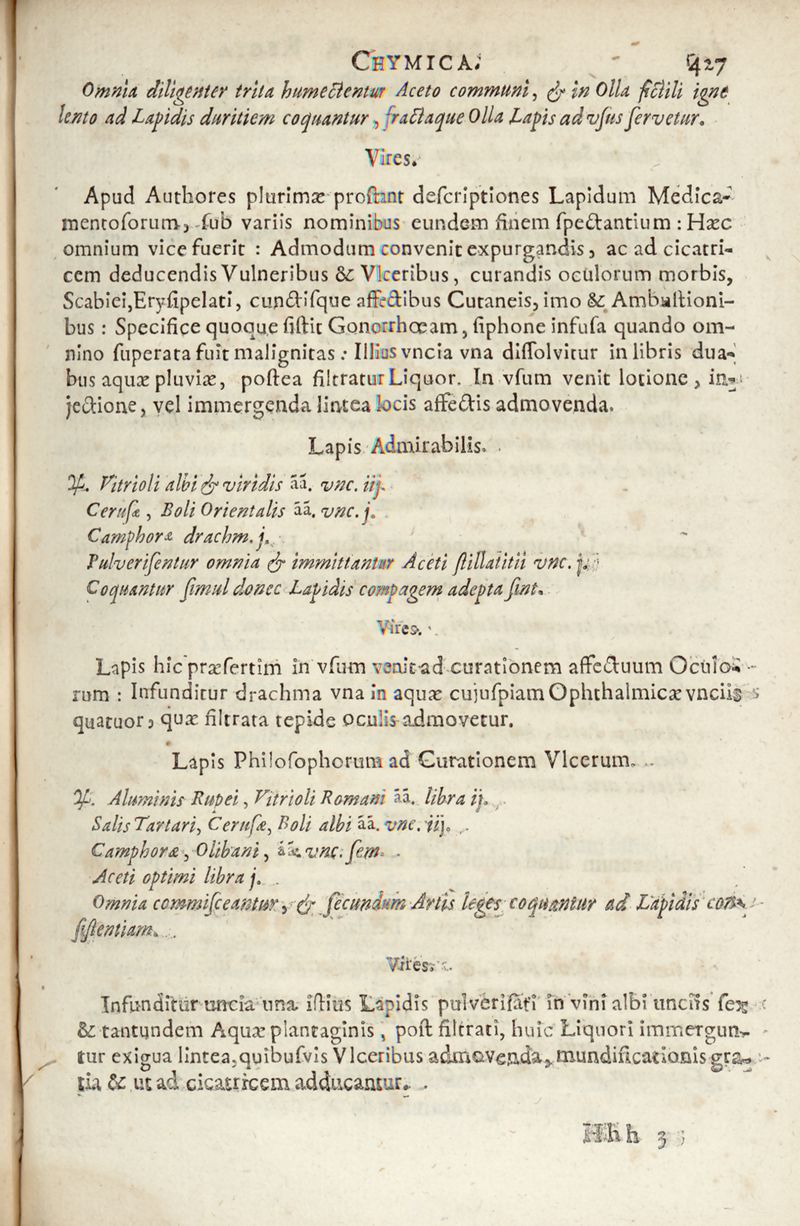 CHYMICA. 427
Omnia diligenter trita humectentur Aceto communi, & in Olla fictili igne
lento ad Lapidis duritiem coquantur, fractaque Olla Lapis ad vſus ſervetur.
Vires.
Apud Authores plurimæ proſtant deſcriptiones Lapidum Medica-
mentoſorum, ſub variis nominibus eundem finem ſpectantium : Hæc
omnium vice fuerit : Admodum convenit expurgandis, ac ad cicatri-
cem deducendis Vulneribus & Vlceribus, curandis oculorum morbis,
Scabiei, Eryſipelati, cunctiſque affectibus Cutaneis, imo & Ambuſtioni-
bus : Specifice quoque ſiſtit Gonorrhœam, ſiphone infuſa quando om-
nino ſuperata fuit malignitas : Illius vncia vna diſſolvitur in libris dua-
bus aquæ pluviæ, poſtea filtratur Liquor. In vſum venit lotione, in-
jectione, vel immergenda lintea locis affectis admovenda.
Lapis Admirabilis.
℞. Vitrioli albi & viridis āā. vnc. iij.
Ceruſæ, Boli Orientalis āā. vnc. j.
Camphoræ drachm. j.
Pulveriſentur omnia & immittantur Aceti ſtillatitii vnc. j.
Coquantur ſimul donec Lapidis compagem adepta ſint.
Vires.
Lapis hic præſertim in vſum venit ad curationem affectuum Oculo-
rum : Infunditur drachma vna in aquæ cujuſpiam Ophthalmicæ vnciis
quatuor, quæ filtrata tepide oculis admovetur.
Lapis Philoſophorum ad Curationem Vlcerum.
℞. Aluminis Rupei, Vitrioli Romani āā. libra ij.
Salis Tartari, Ceruſæ, Boli albi āā. vnc. iij.
Camphoræ, Olibani, āā. vnc. ſem.
Aceti optimi libra j.
Omnia commiſceantur, & ſecundum Artis leges coquantur ad Lapidis con-
ſiſtentiam.
Vires.
Infunditur uncia una iſtius Lapidis pulveriſati in vini albi unciis ſex
& tantundem Aquæ plantaginis, poſt filtrati, huic Liquori immergun-
tur exigua lintea, quibuſvis Vlceribus admovenda, mundificationis gra-
tia & ut ad cicatricem adducantur.
Hhh 3